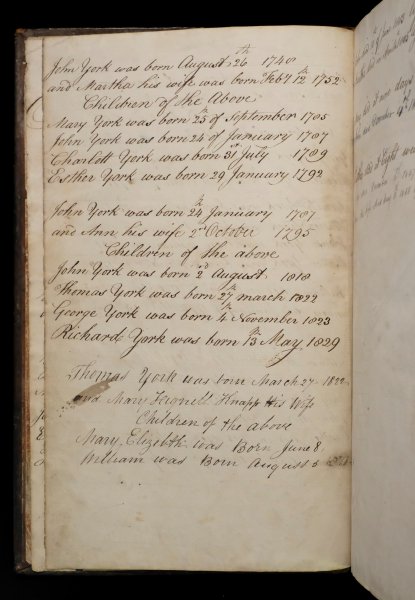 John York was born August 26th 1748
and Martha his wife was born Feby 12th 1752
Children of the Above
Mary York was born 25 of September 1785
John York was born 24 of January 1787
Charlott York was born 31st July 1789
Esther York was born 29 January 1792
John York was born 24th January 1787
and Ann his wife 2nd October 1795
Children of the above
John York was born 2d August 1818
Thomas York was born 27th march 1822
George York was born 4th November 1823
Richard York was born 13th May 1829
Thomas York was born March 27 1822
and Mary Knapp His Wife
Children of the above
Mary Elizebth was Born June 8
William was Born August 5